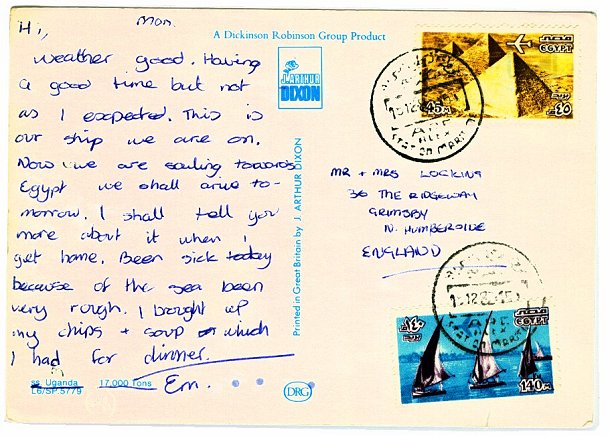 Mon.
Hi,
Weather good. Having
a good time but not
as I expected. This is
our ship we are on.
Now we are sailing towards
Egypt we shall arive to-
morrow. I shall tell you
more about it when I
get home. Been sick today
because of the sea been
very rough. I brought up
my chips + soup which
I had for dinner.
Em.
ss. Uganda 17,000 Tons
L6/SP.5779
A Dickinson Robinson Group Product
J. ARTHUR
DIXON
Printed in Great Britain by J. ARTHUR DIXON
DRG
MR + MRS LOCKING
36 THE RIDGEWAY
GRIMSBY
N. HUMBERSIDE
ENGLAND
مصر
EGYPT
٤٥
45
بريد
15 12 8
A.R.E
مصر
EGYPT
١٤٠
بريد
140
15.12.8
A.R.E